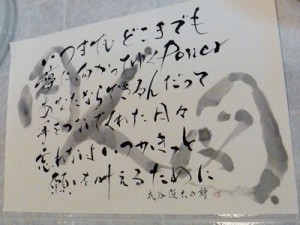 いつまでもどこまでも
夢に向かってゆくPower
あなたなら出来るんだって
手をつないでくれた日々
忘れないいつかきっと
願いを叶えるために